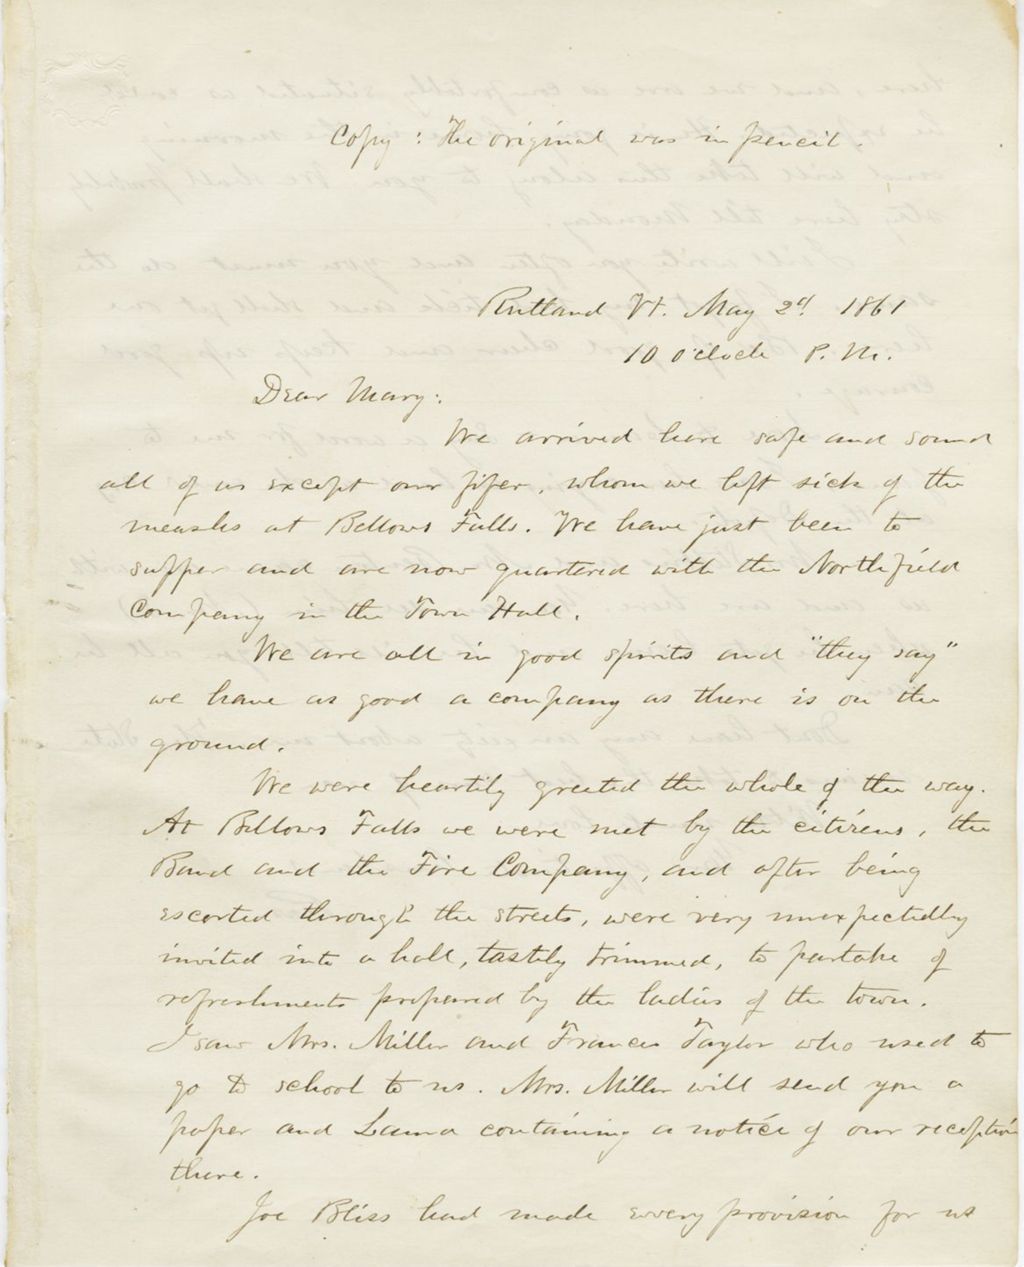 Copy: The original was in pencil.
Rutland Vt. May 2d 1861
10 o'clock P. M.
Dear Mary:
We arrived here safe and sound
all of us except our fifer, whom we left sick of the
measles at Bellows Falls. We have just been to
supper and are now quartered with the Northfield
Company in the Town Hall.
We are all in good spirits and "they say"
we have as good a company as there is on the
ground.
We were heartily greeted the whole of the way.
At Bellows Falls we were met by the citizens, the
Band and the Fire Company, and after being
escorted through the streets, were very unexpectedly
invited into a hall, tastily trimmed, to partake of
refreshments prepared by the ladies of the town.
I saw Mrs. Miller and Frances Taylor who used to
go to school to us. Mrs. Miller will send you a
paper and Laura containing a notice of our reception
there.
Joe Bliss had made every provision for us